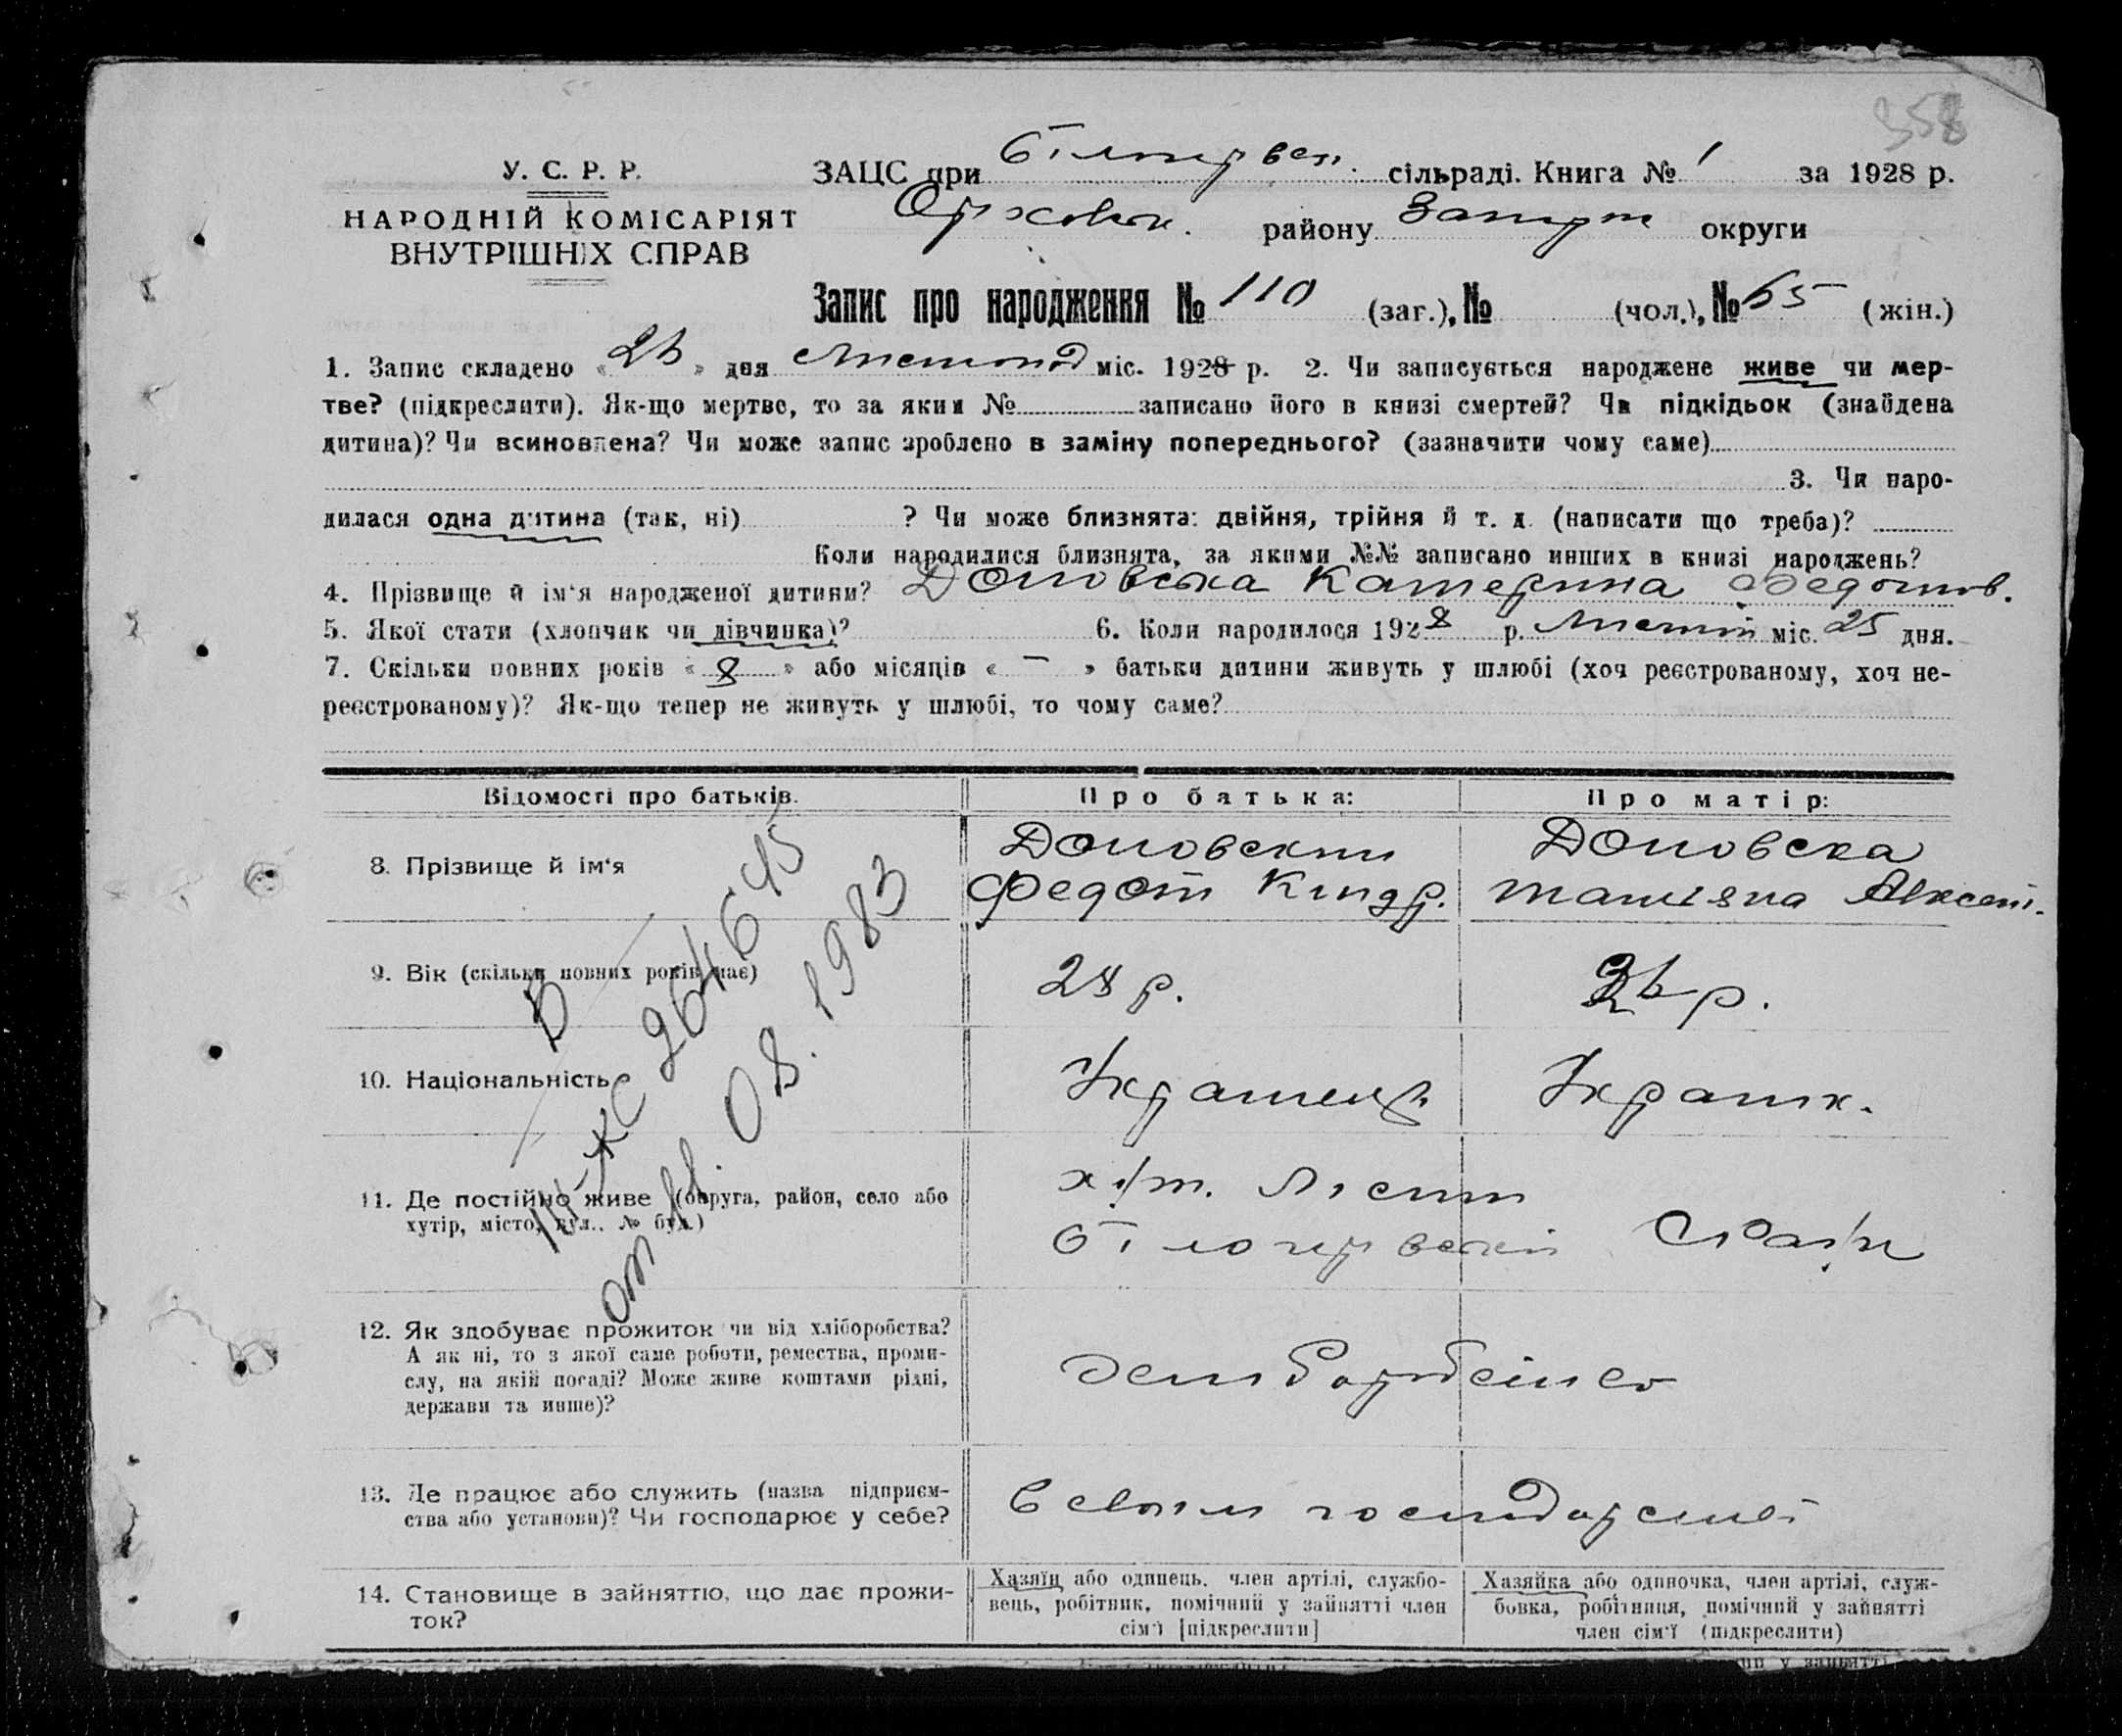 358
У. С. Р. Р.
НАРОДНІЙ КОМІСАРІЯТ
ВНУТРІШНІХ СПРАВ
ЗАЦС при сільраді. Книга № 1 за 1928 р.
Оріховськ. району Запоріж округи
Запис про народження № 110 (заг.), № (чол.), № 65 (жін.)
1. Запис складено « 26 » дня Листопад міс. 1928 р. 2. Чи записується народжене живе чи мер-
тве? (підкреслити). Як-що мертве, то за яким № записано його в книзі смертей? Чи підкідьок (знайдена
дитина)? Чи всиновлена? Чи може запис зроблено в заміну попереднього? (зазначити чому саме)
3. Чи наро-
дилася одна дитина (так, ні) ? Чи може близнята: двійня, трійня й т. д. (написати що треба)?
Коли народилися близнята, за якими №№ записано инших в книзі народжень?
4. Прізвище й ім‘я народженої дитини? Доповська Катерина Федотов.
5. Якої стати (хлопчик чи дівчинка)? 6. Коли народилося 1928 р. Листоп міс. 25 дня.
7. Скільки повних років « 8 » або місяців « — » батьки дитини живуть у шлюбі (хоч реєстрованому, хоч не-
реєстрованому)? Як-що тепер не живуть у шлюбі, то чому саме?
Відомості про батьків. Про батька: Про матір:
8. Прізвище й ім‘я
Доповский Доповска
Федот Кіндр. Татияна Авксент.
9. Вік (скільки повних років має) 28 р. 26 р.
10. Національність Українец Україн к.
11. Де постійно живе (округа, район, село або
хутір, місто, вул., № буд.)
12. Як здобуває прожиток чи від хліборобства?
А як ні, то з якої саме роботи, ремества, проми-
слу, на якій посаді? Може живе коштами рідні,
держави та инше)?
хліборобство
13. Де працює або служить (назва підприєм-
ства або установи)? Чи господарює у себе?
в своїм господарстві
14. Становище в зайняттю, що дає прожи-
ток?
Хазяїн або одинець, член артілі, службо-
вець, робітник, помічний у зайнятті член
сім‘ї [підкреслити]
Хазяйка або одиночка, член артілі, служ-
бовка, робітниця, помічний у зайнятті
член сім‘ї (підкреслити)
264645
от 11. 08. 1983